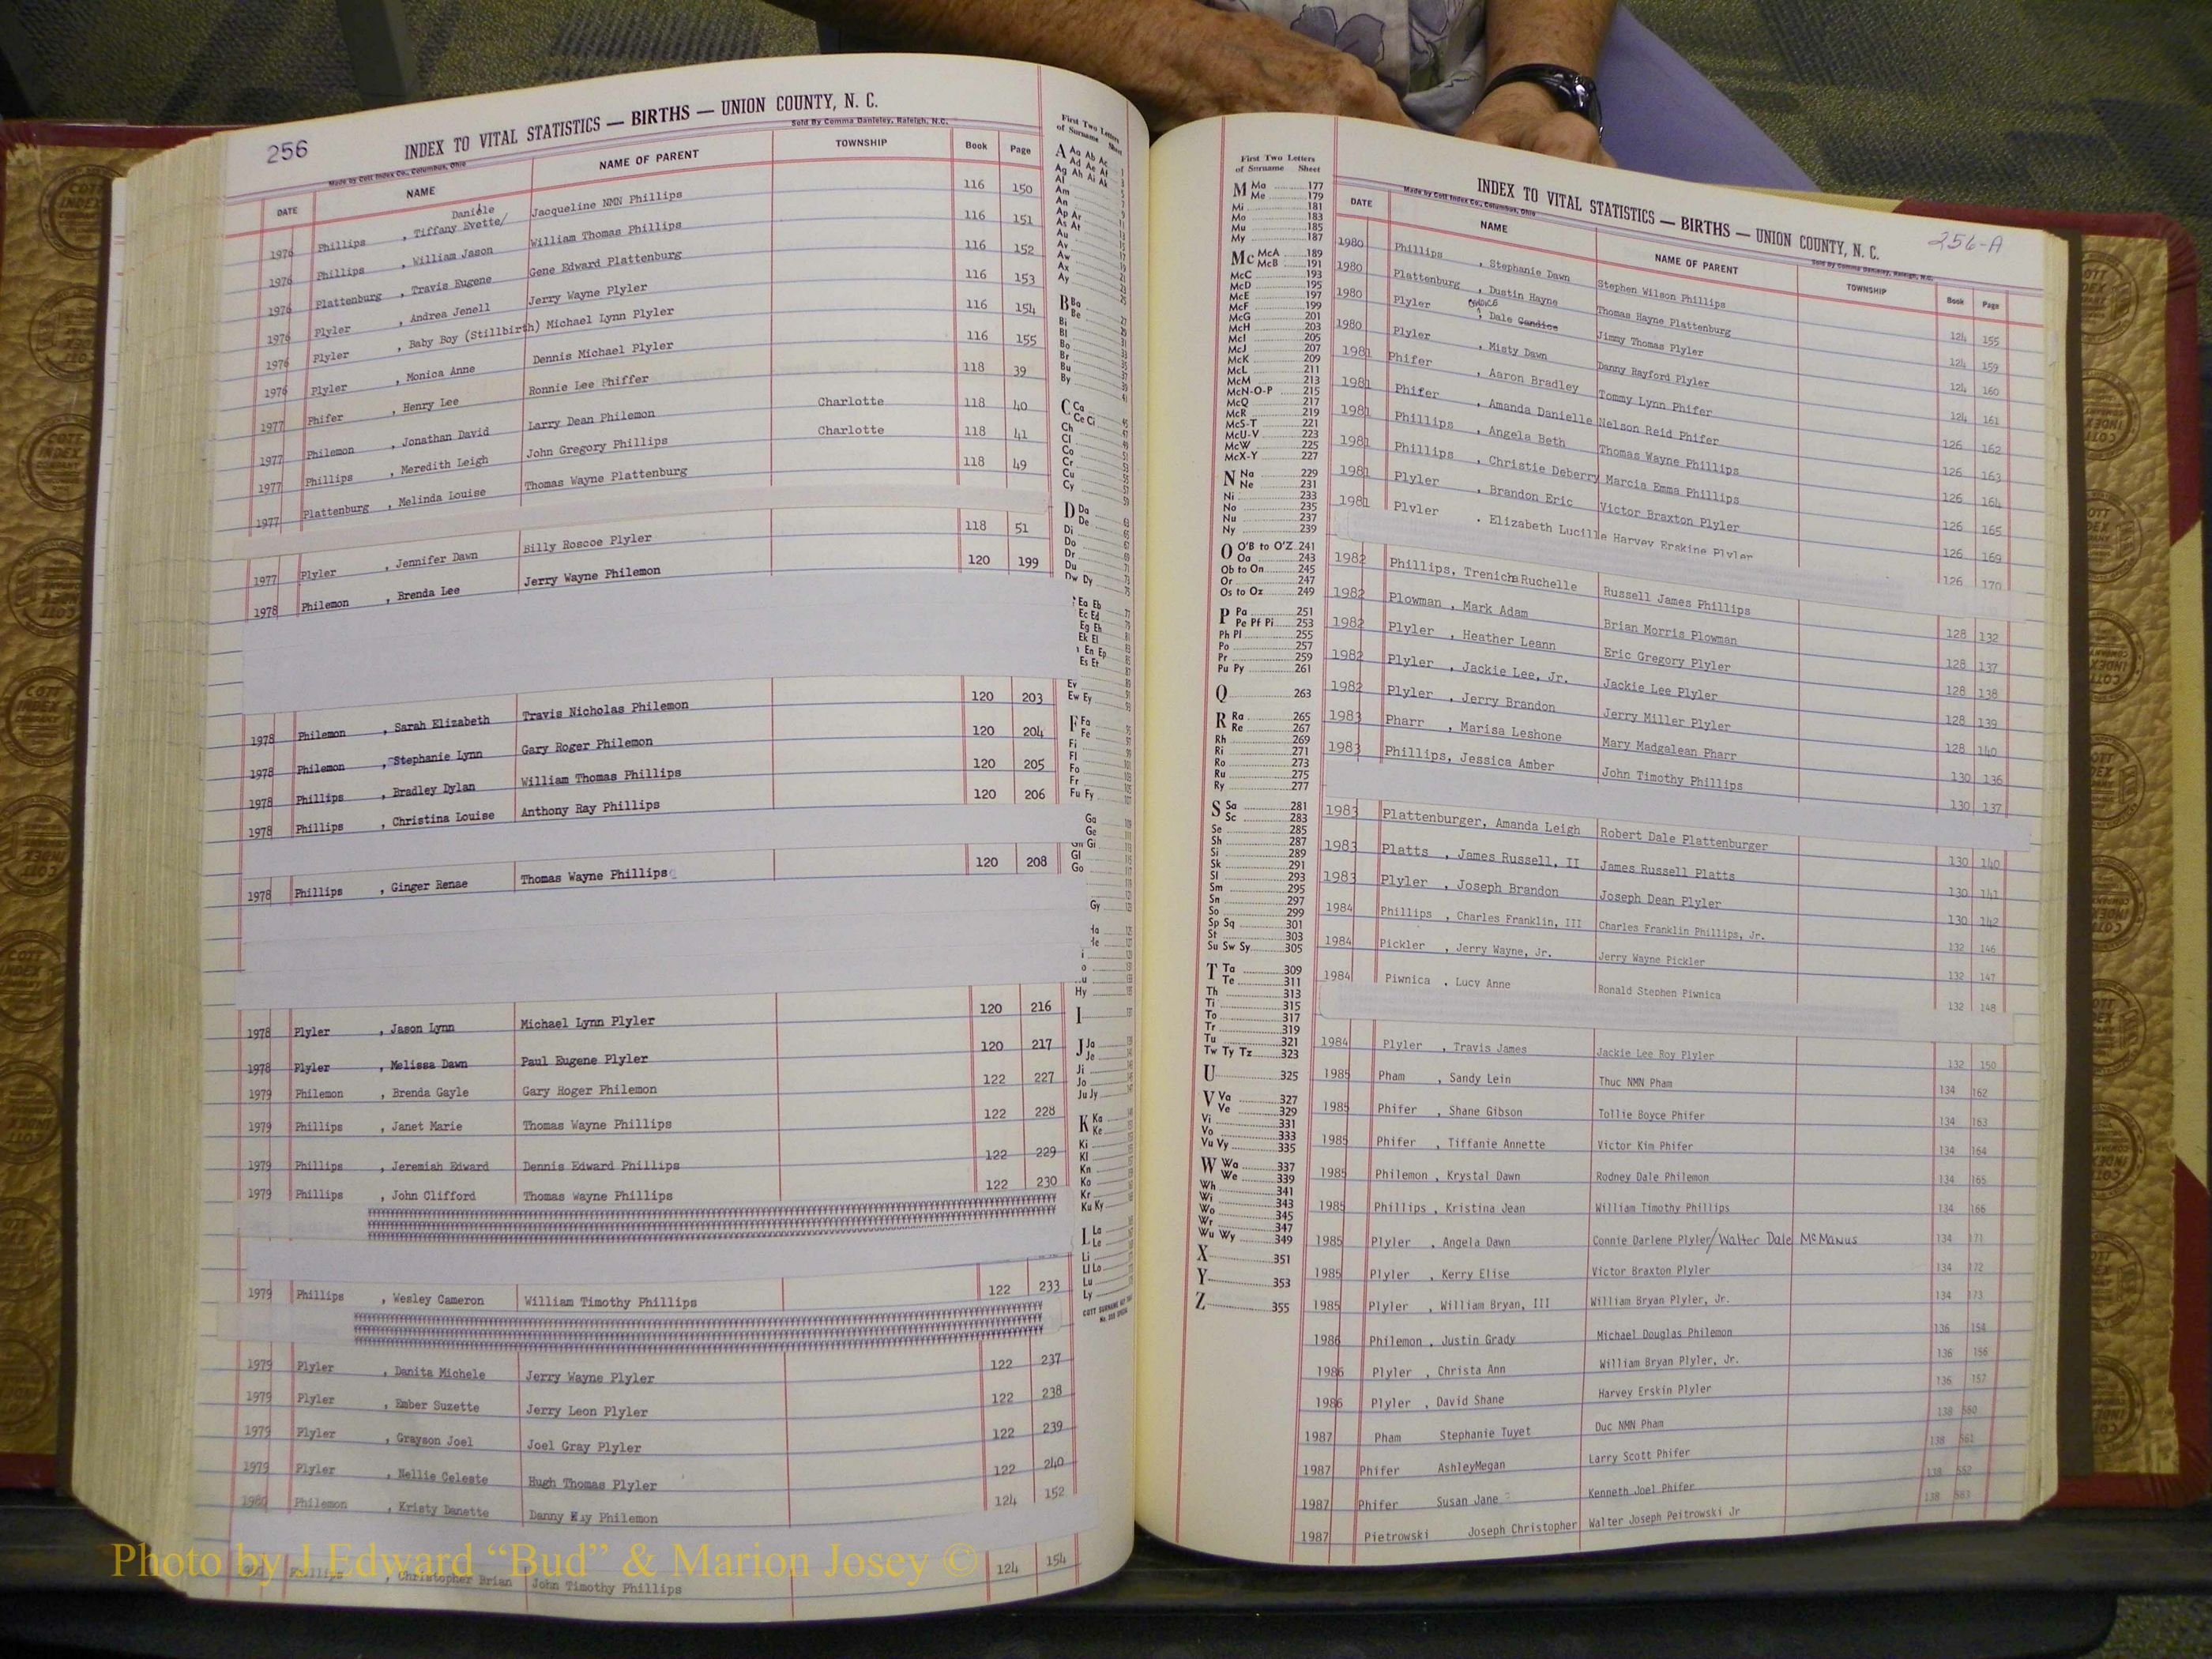 256
INDEX TO VITAL STATISTICS — BIRTHS — UNION COUNTY, N. C.
Made by Cott Index Co., Columbus, Ohio
Sold By Comma Danieley, Raleigh, N.C.
DATE NAME NAME OF PARENT TOWNSHIP Book Page
Daniele
1976 Phillips , Tiffany Evette/ Jacqueline NMN Phillips 116 150
1976 Phillips , William Jason William Thomas Phillips 116 151
1976 Plattenburg , Travis Eugene Gene Edward Plattenburg 116 152
1976 Plyler , Andrea Jenell Jerry Wayne Plyler 116 153
1976 Plyler , Baby Boy (Stillbirth) Michael Lynn Plyler 116 154
1976 Plyler , Monica Anne Dennis Michael Plyler 116 155
1977 Phifer , Henry Lee Ronnie Lee Phiffer 118 39
1977 Philemon , Jonathan David Larry Dean Philemon Charlotte 118 40
1977 Phillips , Meredith Leigh John Gregory Phillips Charlotte 118 41
1977 Plattenburg , Melinda Louise Thomas Wayne Plattenburg 118 49
1977 Plyler , Jennifer Dawn Billy Roscoe Plyler 118 51
1978 Philemon , Brenda Lee Jerry Wayne Philemon 120 199
1978 Philemon , Sarah Elizabeth Travis Nicholas Philemon 120 203
1978 Philemon , Stephanie Lynn Gary Roger Philemon 120 204
1978 Phillips , Bradley Dylan William Thomas Phillips 120 205
1978 Phillips , Christina Louise Anthony Ray Phillips 120 206
1978 Phillips , Ginger Renae Thomas Wayne Phillips 120 208
1978 Plyler , Jason Lynn Michael Lynn Plyler 120 216
1978 Plyler , Melissa Dawn Paul Eugene Plyler 120 217
1979 Philemon , Brenda Gayle Gary Roger Philemon 122 227
1979 Phillips , Janet Marie Thomas Wayne Phillips 122 228
1979 Phillips , Jeremiah Edward Dennis Edward Phillips 122 229
1979 Phillips , John Clifford Thomas Wayne Phillips 122 230
1979 Phillips , Wesley Cameron William Timothy Phillips 122 233
1979 Plyler , Danita Michele Jerry Wayne Plyler 122 237
1979 Plyler , Ember Suzette Jerry Leon Plyler 122 238
1979 Plyler , Grayson Joel Joel Gray Plyler 122 239
1979 Plyler , Nellie Celeste Hugh Thomas Plyler 122 240
1980 Philemon , Kristy Danette Danny Philemon 124 152
Phillips , Christopher Brian John Timothy Phillips 124 154
Photo by J.Edward “Bud” & Marion Josey ©
First Two Letters
of Surname Sheet
A Aa Ab Ac
Ad Ae Af
Ag Ah Ai Ak
Al
Am
An
Ap Ar
As At
Au
Av
Aw
Ax
Ay
B Ba
Be
Bi
Bl
Bo
Br
Bu
By
C Ca
Ce Ci
Ch
Cl
Co
Cr
Cu
Cy
D Da
De
Di
Do
Dr
Du
Dw Dy
Ea Eb
Ec Ed
Eg Eh
Ek El
En Ep
Es Et
Ev
Ew Ey
F Fa
Fe
Fi
Fl
Fo
Fr
Fu Fy
Ga
Ge
Gi
Gl
Go
Gy
Hy
I
J Ja
Je
Ji
Jo
Ju Jy
K Ka
Ke
Ki
Kl
Kn
Ko
Kr
Ku Ky
L La
Le
Li
Ll Lo
Lu
Ly
First Two Letters
of Surname Sheet
M Ma 177
Me 179
Mi 181
Mo 183
Mu 185
My 187
Mc McA 189
McB 191
McC 193
McD 195
McE 197
McF 199
McG 201
McH 203
McI 205
McJ 207
McK 209
McL 211
McM 213
McN-O-P 215
McQ 217
McR 219
McS-T 221
McU-V 223
McW 225
McX-Y 227
N Na 229
Ne 231
Ni 233
No 235
Nu 237
Ny 239
O O'B to O'Z 241
Oa 243
Ob to On 245
Or 247
Os to Oz 249
P Pa 251
Pe Pf Pi 253
Ph Pl 255
Po 257
Pr 259
Pu Py 261
Q 263
R Ra 265
Re 267
Rh 269
Ri 271
Ro 273
Ru 275
Ry 277
S Sa 281
Sc 283
Se 285
Sh 287
Si 289
Sk 291
Sl 293
Sm 295
Sn 297
So 299
Sp Sq 301
St 303
Su Sw Sy 305
T Ta 309
Te 311
Th 313
Ti 315
To 317
Tr 319
Tu 321
Tw Ty Tz 323
U 325
V Va 327
Ve 329
Vi 331
Vo 333
Vu Vy 335
W Wa 337
We 339
Wh 341
Wi 343
Wo 345
Wr 347
Wu Wy 349
X 351
Y 353
Z 355
256-A
INDEX TO VITAL STATISTICS — BIRTHS — UNION COUNTY, N. C.
Made by Cott Index Co., Columbus, Ohio
Sold By Comma Danieley, Raleigh, N.C.
DATE NAME NAME OF PARENT TOWNSHIP Book Page
1980 Phillips , Stephanie Dawn Stephen Wilson Phillips 124 155
1980 Plattenburg , Dustin Hayne Thomas Hayne Plattenburg 124 159
1980 Plyler , Dale Candice Jimmy Thomas Plyler 124 160
1980 Plyler , Misty Dawn Danny Rayford Plyler 124 161
1981 Phifer , Aaron Bradley Tommy Lynn Phifer 126 162
1981 Phifer , Amanda Danielle Nelson Reid Phifer 126 163
1981 Phillips , Angela Beth Thomas Wayne Phillips 126 164
1981 Phillips , Christie Deberry Marcia Emma Phillips 126 165
1981 Plyler , Brandon Eric Victor Braxton Plyler 126 169
1981 Plyler , Elizabeth Lucille Harvey Erskine Plyler 126 170
1982 Phillips, Trenicha Ruchelle Russell James Phillips 128 132
1982 Plowman , Mark Adam Brian Morris Plowman 128 137
1982 Plyler , Heather Leann Eric Gregory Plyler 128 138
1982 Plyler , Jackie Lee, Jr. Jackie Lee Plyler 128 139
1982 Plyler , Jerry Brandon Jerry Miller Plyler 128 140
1983 Pharr , Marisa Leshone Mary Madgalean Pharr 130 136
1983 Phillips, Jessica Amber John Timothy Phillips 130 137
1983 Plattenburger, Amanda Leigh Robert Dale Plattenburger 130 140
1983 Platts , James Russell, II James Russell Platts 130 141
1983 Plyler , Joseph Brandon Joseph Dean Plyler 130 142
1984 Phillips , Charles Franklin, III Charles Franklin Phillips, Jr. 132 146
1984 Pickler , Jerry Wayne, Jr. Jerry Wayne Pickler 132 147
1984 Piwnica , Lucy Anne Ronald Stephen Piwnica 132 148
1984 Plyler , Travis James Jackie Lee Roy Plyler 132 150
1985 Pham , Sandy Lein Thuc NMN Pham 134 162
1985 Phifer , Shane Gibson Tollie Boyce Phifer 134 163
1985 Phifer , Tiffanie Annette Victor Kim Phifer 134 164
1985 Philemon , Krystal Dawn Rodney Dale Philemon 134 165
1985 Phillips , Kristina Jean William Timothy Phillips 134 166
1985 Plyler , Angela Dawn Connie Darlene Plyler/Walter Dale McManus 134 171
1985 Plyler , Kerry Elise Victor Braxton Plyler 134 172
1985 Plyler , William Bryan, III William Bryan Plyler, Jr. 134 173
1986 Philemon , Justin Grady Michael Douglas Philemon 136 154
1986 Plyler , Christa Ann William Bryan Plyler, Jr. 136 156
1986 Plyler , David Shane Harvey Erskin Plyler 136 157
1987 Pham Stephanie Tuyet Duc NMN Pham 138
1987 Phifer AshleyMegan Larry Scott Phifer 138
1987 Phifer Susan Jane Kenneth Joel Phifer 138
1987 Pietrowski Joseph Christopher Walter Joseph Peitrowski Jr 138